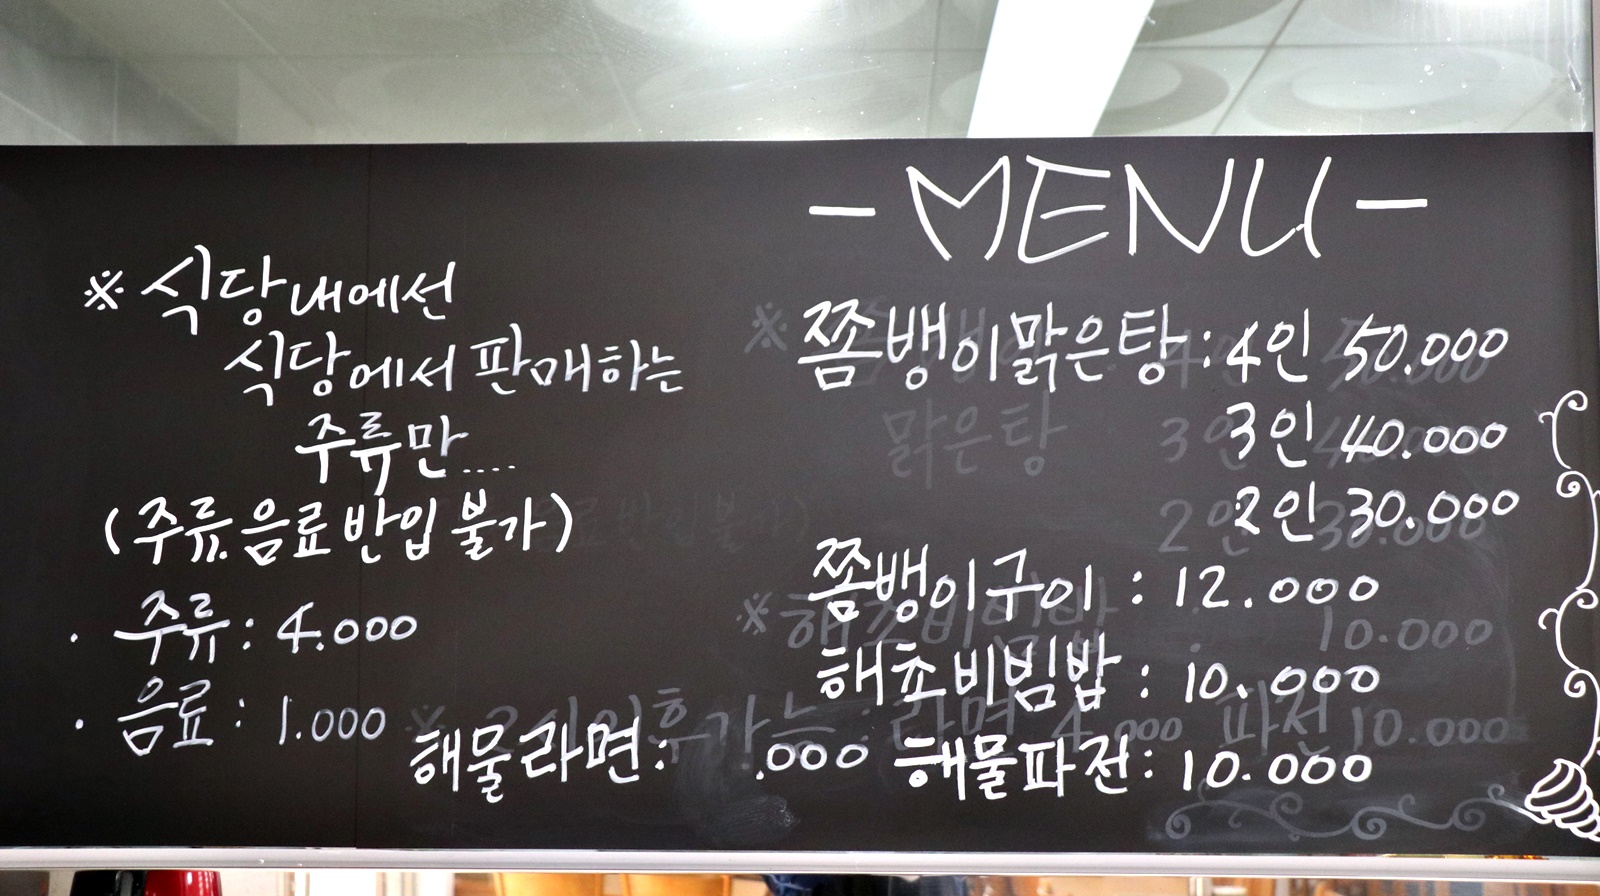 ※ 식당내에선
식당에서 판매하는
주류만....
(주류.음료 반입 불가)
· 주류 : 4.000
· 음료 : 1.000
해물라면 : .000
- MENU -
쫌뱅이맑은탕 : 4인 50.000
3인 40.000
2인 30.000
쫌뱅이구이 : 12.000
해초비빔밥 : 10.000
해물파전 : 10.000